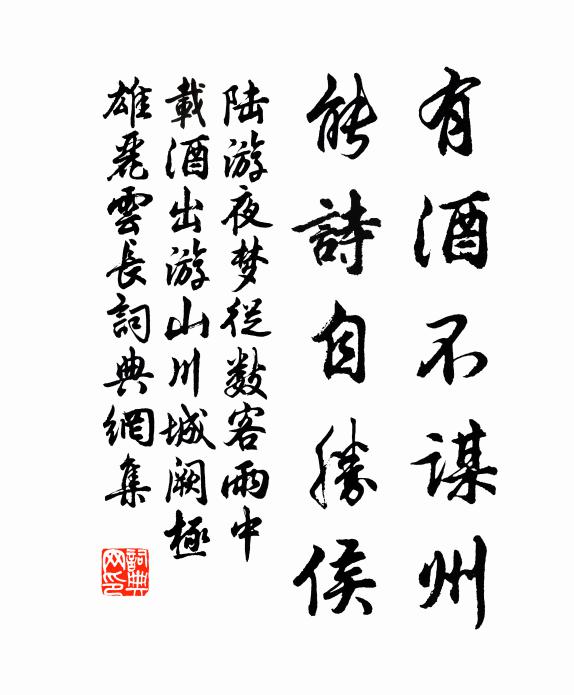 有酒不谋州
能詩自勝侯
陆游夜梦從数客雨中
載酒出游山川城阙極
雄麗雲長詞典網集
詞典
网印